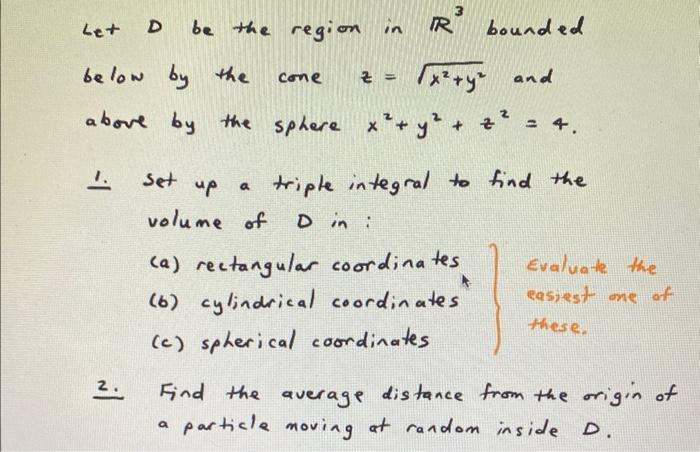 Let D be the region in ℝ³ bounded
below by the cone z = √x²+y² and
above by the sphere x² + y² + z² = 4.
1. Set up a triple integral to find the
volume of D in :
(a) rectangular coordinates
(b) cylindrical coordinates
(c) spherical coordinates
Evaluate the
easiest one of
these.
2. Find the average distance from the origin of
a particle moving at random inside D.